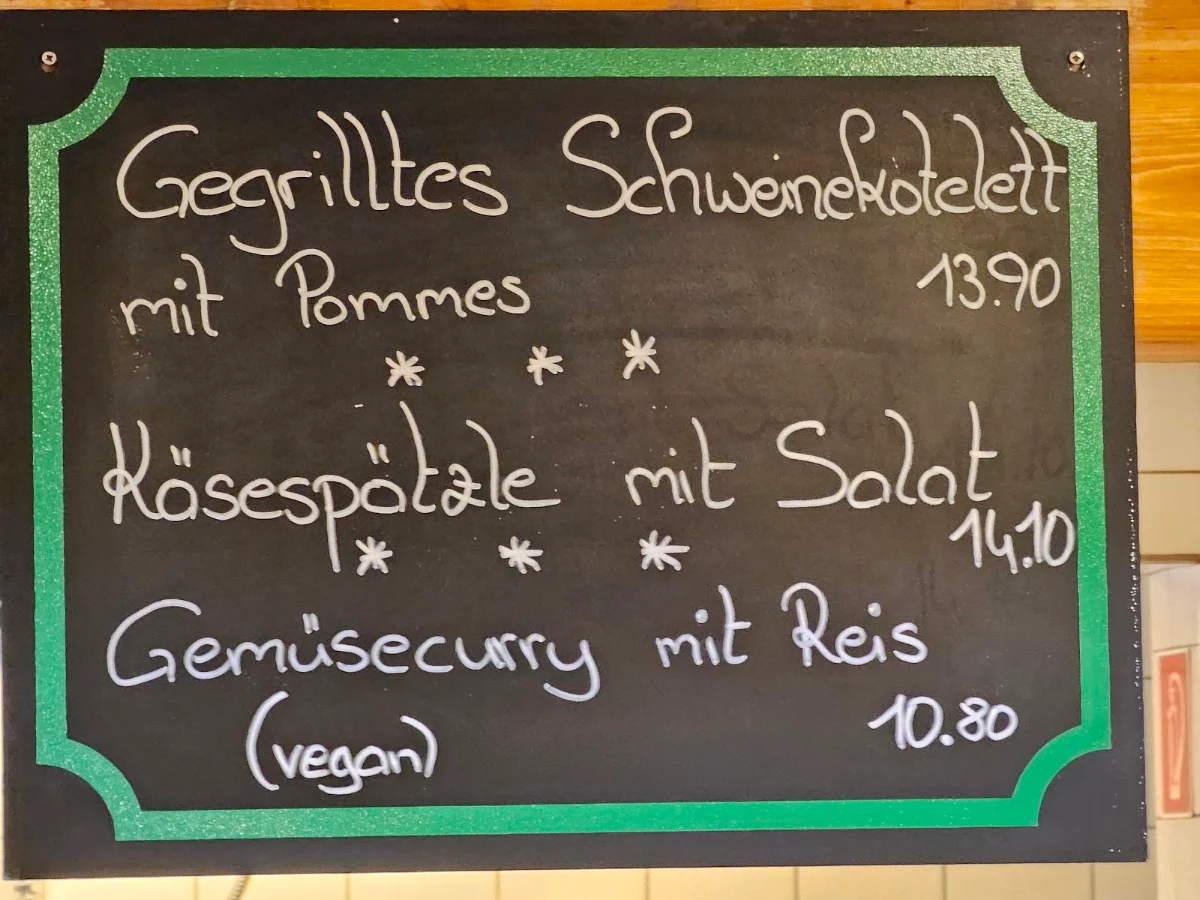 Gegrilltes Schweinekotelett
mit Pommes 13.90
* * *
Käsespätzle mit Salat
14.10
* * *
Gemüsecurry mit Reis
(vegan) 10.80